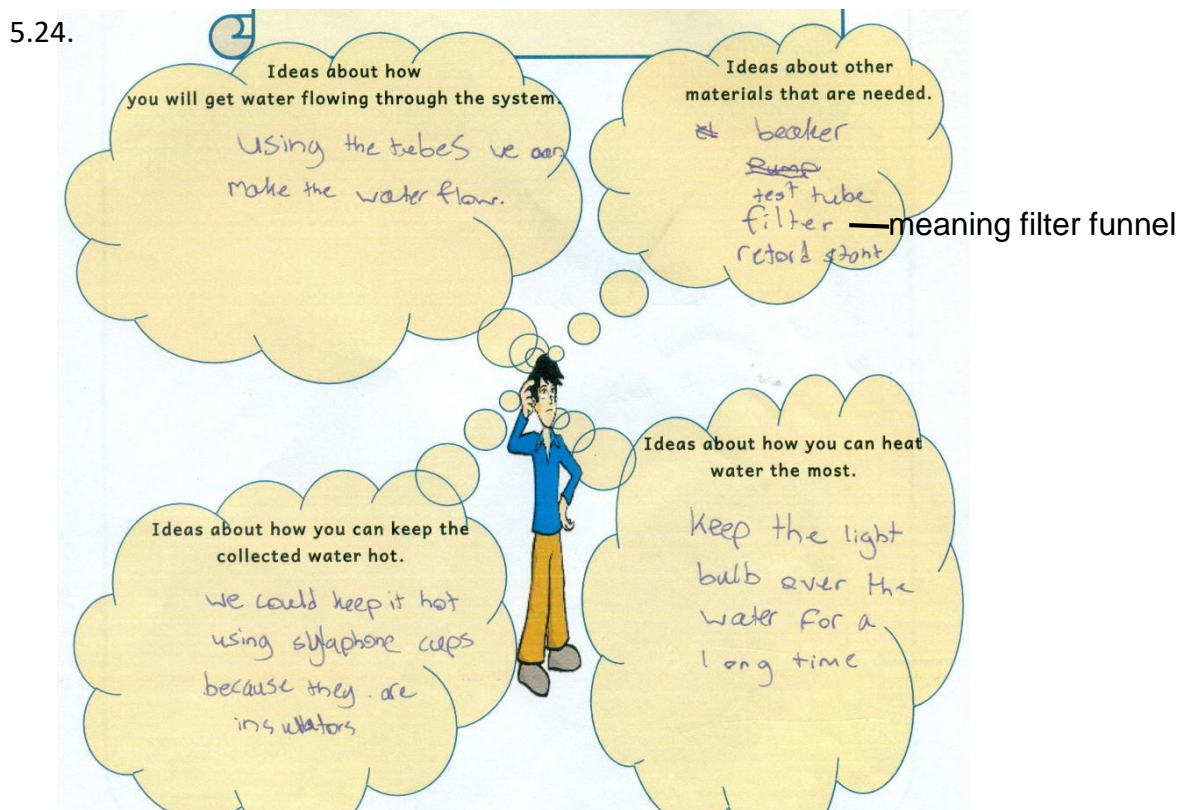 5.24.
Ideas about how
you will get water flowing through the system.
using the tubes we can
make the water flow.
Ideas about other
materials that are needed.
beaker
Pump
test tube
filter
meaning filter funnel
retord stant
Ideas about how you can keep the
collected water hot.
we could keep it hot
using stylaphone cups
because they are
insulators
Ideas about how you can heat
water the most.
Keep the light
bulb over the
water for a
long time